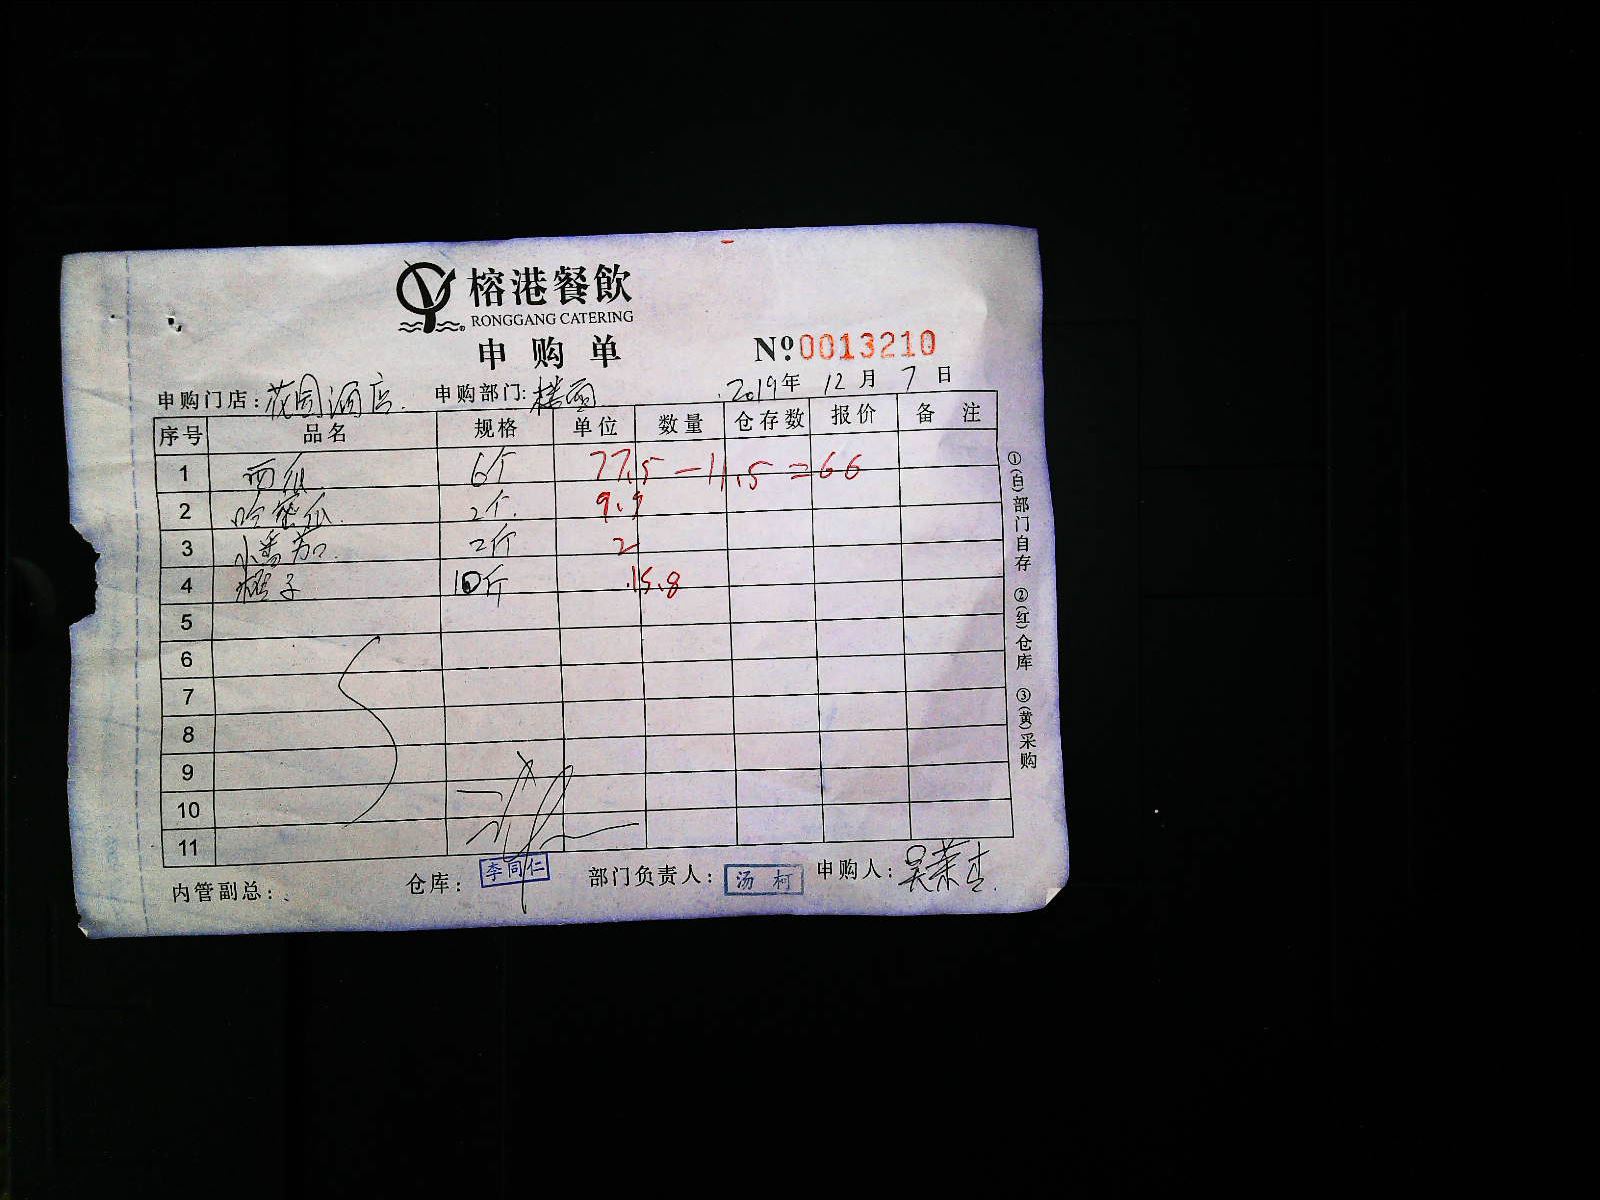 榕港餐飲
RONGGANG CATERING
申购单
Nº 0013210
申购门店: 花园酒店 申购部门: 楼面 2019年 12月 7日
序号 品名 规格 单位 数量 仓存数 报价 备注
1 西瓜 6个 77.5-11.5=66
2 哈密瓜 2个 9.9
3 小番茄 2斤 2
4 橙子 10斤 15.8
5
6
7
8
9
10
11
内管副总: 仓库: 李同仁 部门负责人: 汤柯 申购人: 吴荣杰
①(白)部门自存 ②(红)仓库 ③(黄)采购